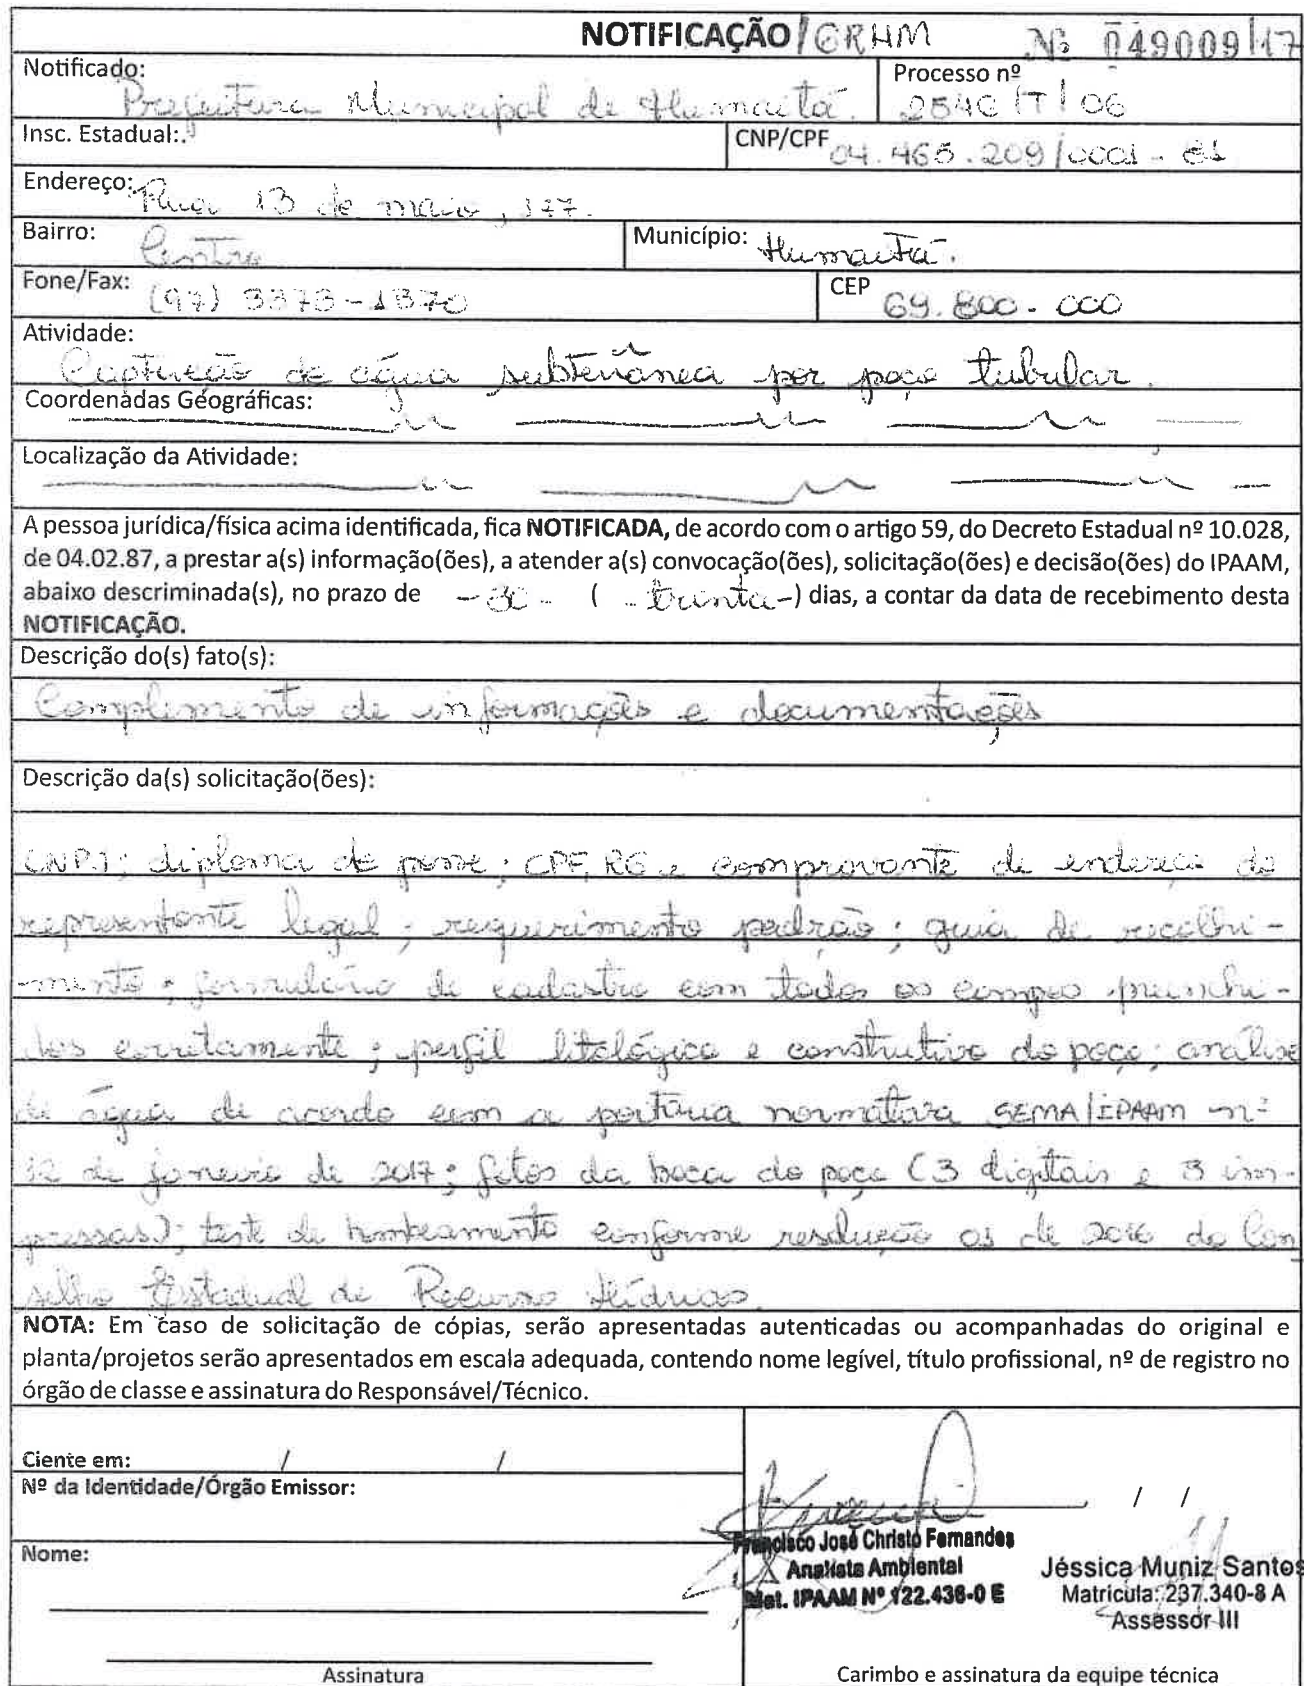 NOTIFICAÇÃO/GRHM Nº 049009/17
Notificado: Prefeitura Municipal de Humaitá.
Processo nº 2540/T/06
Insc. Estadual:.
CNP/CPF 04.465.209/0001-81
Endereço: Rua 13 de maio, 177.
Bairro: Centro
Município: Humaitá.
Fone/Fax: (97) 3373-1370
CEP 69.800-000
Atividade:
Captação de água subterrânea por poço tubular.
Coordenadas Geográficas:
Localização da Atividade:
A pessoa jurídica/física acima identificada, fica NOTIFICADA, de acordo com o artigo 59, do Decreto Estadual nº 10.028,
de 04.02.87, a prestar a(s) informação(ões), a atender a(s) convocação(ões), solicitação(ões) e decisão(ões) do IPAAM,
abaixo descriminada(s), no prazo de -30- (-trinta-) dias, a contar da data de recebimento desta
NOTIFICAÇÃO.
Descrição do(s) fato(s):
Complemento de informações e documentações
Descrição da(s) solicitação(ões):
CNPJ; diploma de posse; CPF, RG e comprovante de endereço do
representante legal; requerimento padrão; guia de recolhi-
-mento; formulário de cadastro com todos os campos preenchi-
dos corretamente; perfil litológico e construtivo do poço; análise
de água de acordo com a portaria normativa SEMA/IPAAM nº
12 de janeiro de 2017; fotos da boca do poço (3 digitais e 3 im-
pressas); teste de bombeamento conforme resolução 01 de 2016 do Con
selho Estadual de Recurso Hídricos.
NOTA: Em caso de solicitação de cópias, serão apresentadas autenticadas ou acompanhadas do original e
planta/projetos serão apresentados em escala adequada, contendo nome legível, título profissional, nº de registro no
órgão de classe e assinatura do Responsável/Técnico.
Ciente em: / /
Nº da Identidade/Órgão Emissor:
Nome:
Assinatura
/ /
Francisco José Christo Fernandes
Analista Ambiental
Mat. IPAAM Nº 122.436-0 E
Jéssica Muniz Santos
Matricula: 237.340-8 A
Assessor III
Carimbo e assinatura da equipe técnica